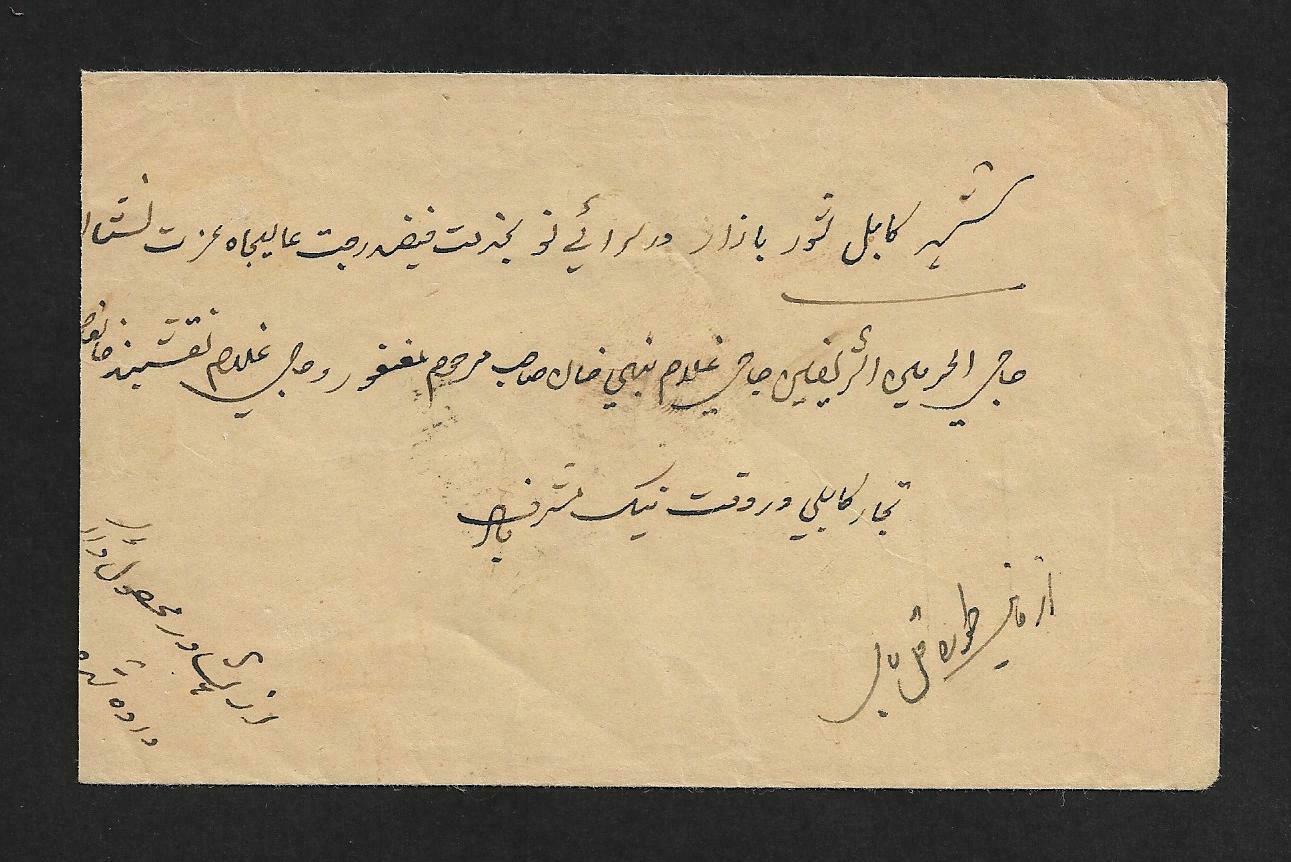 شهر کابل شور بازار در سرائے نو بخدمت فیضدرجت عالیجاه عزت نشان
حاجی الحرمین الشریفین حاجی غلام نبی خان صاحب مرحوم مغفور و حاجی غلام نقشبند خان
تجار کابلی در وقت نیک مشرف باد
از
از پشاور محصول
داده شده